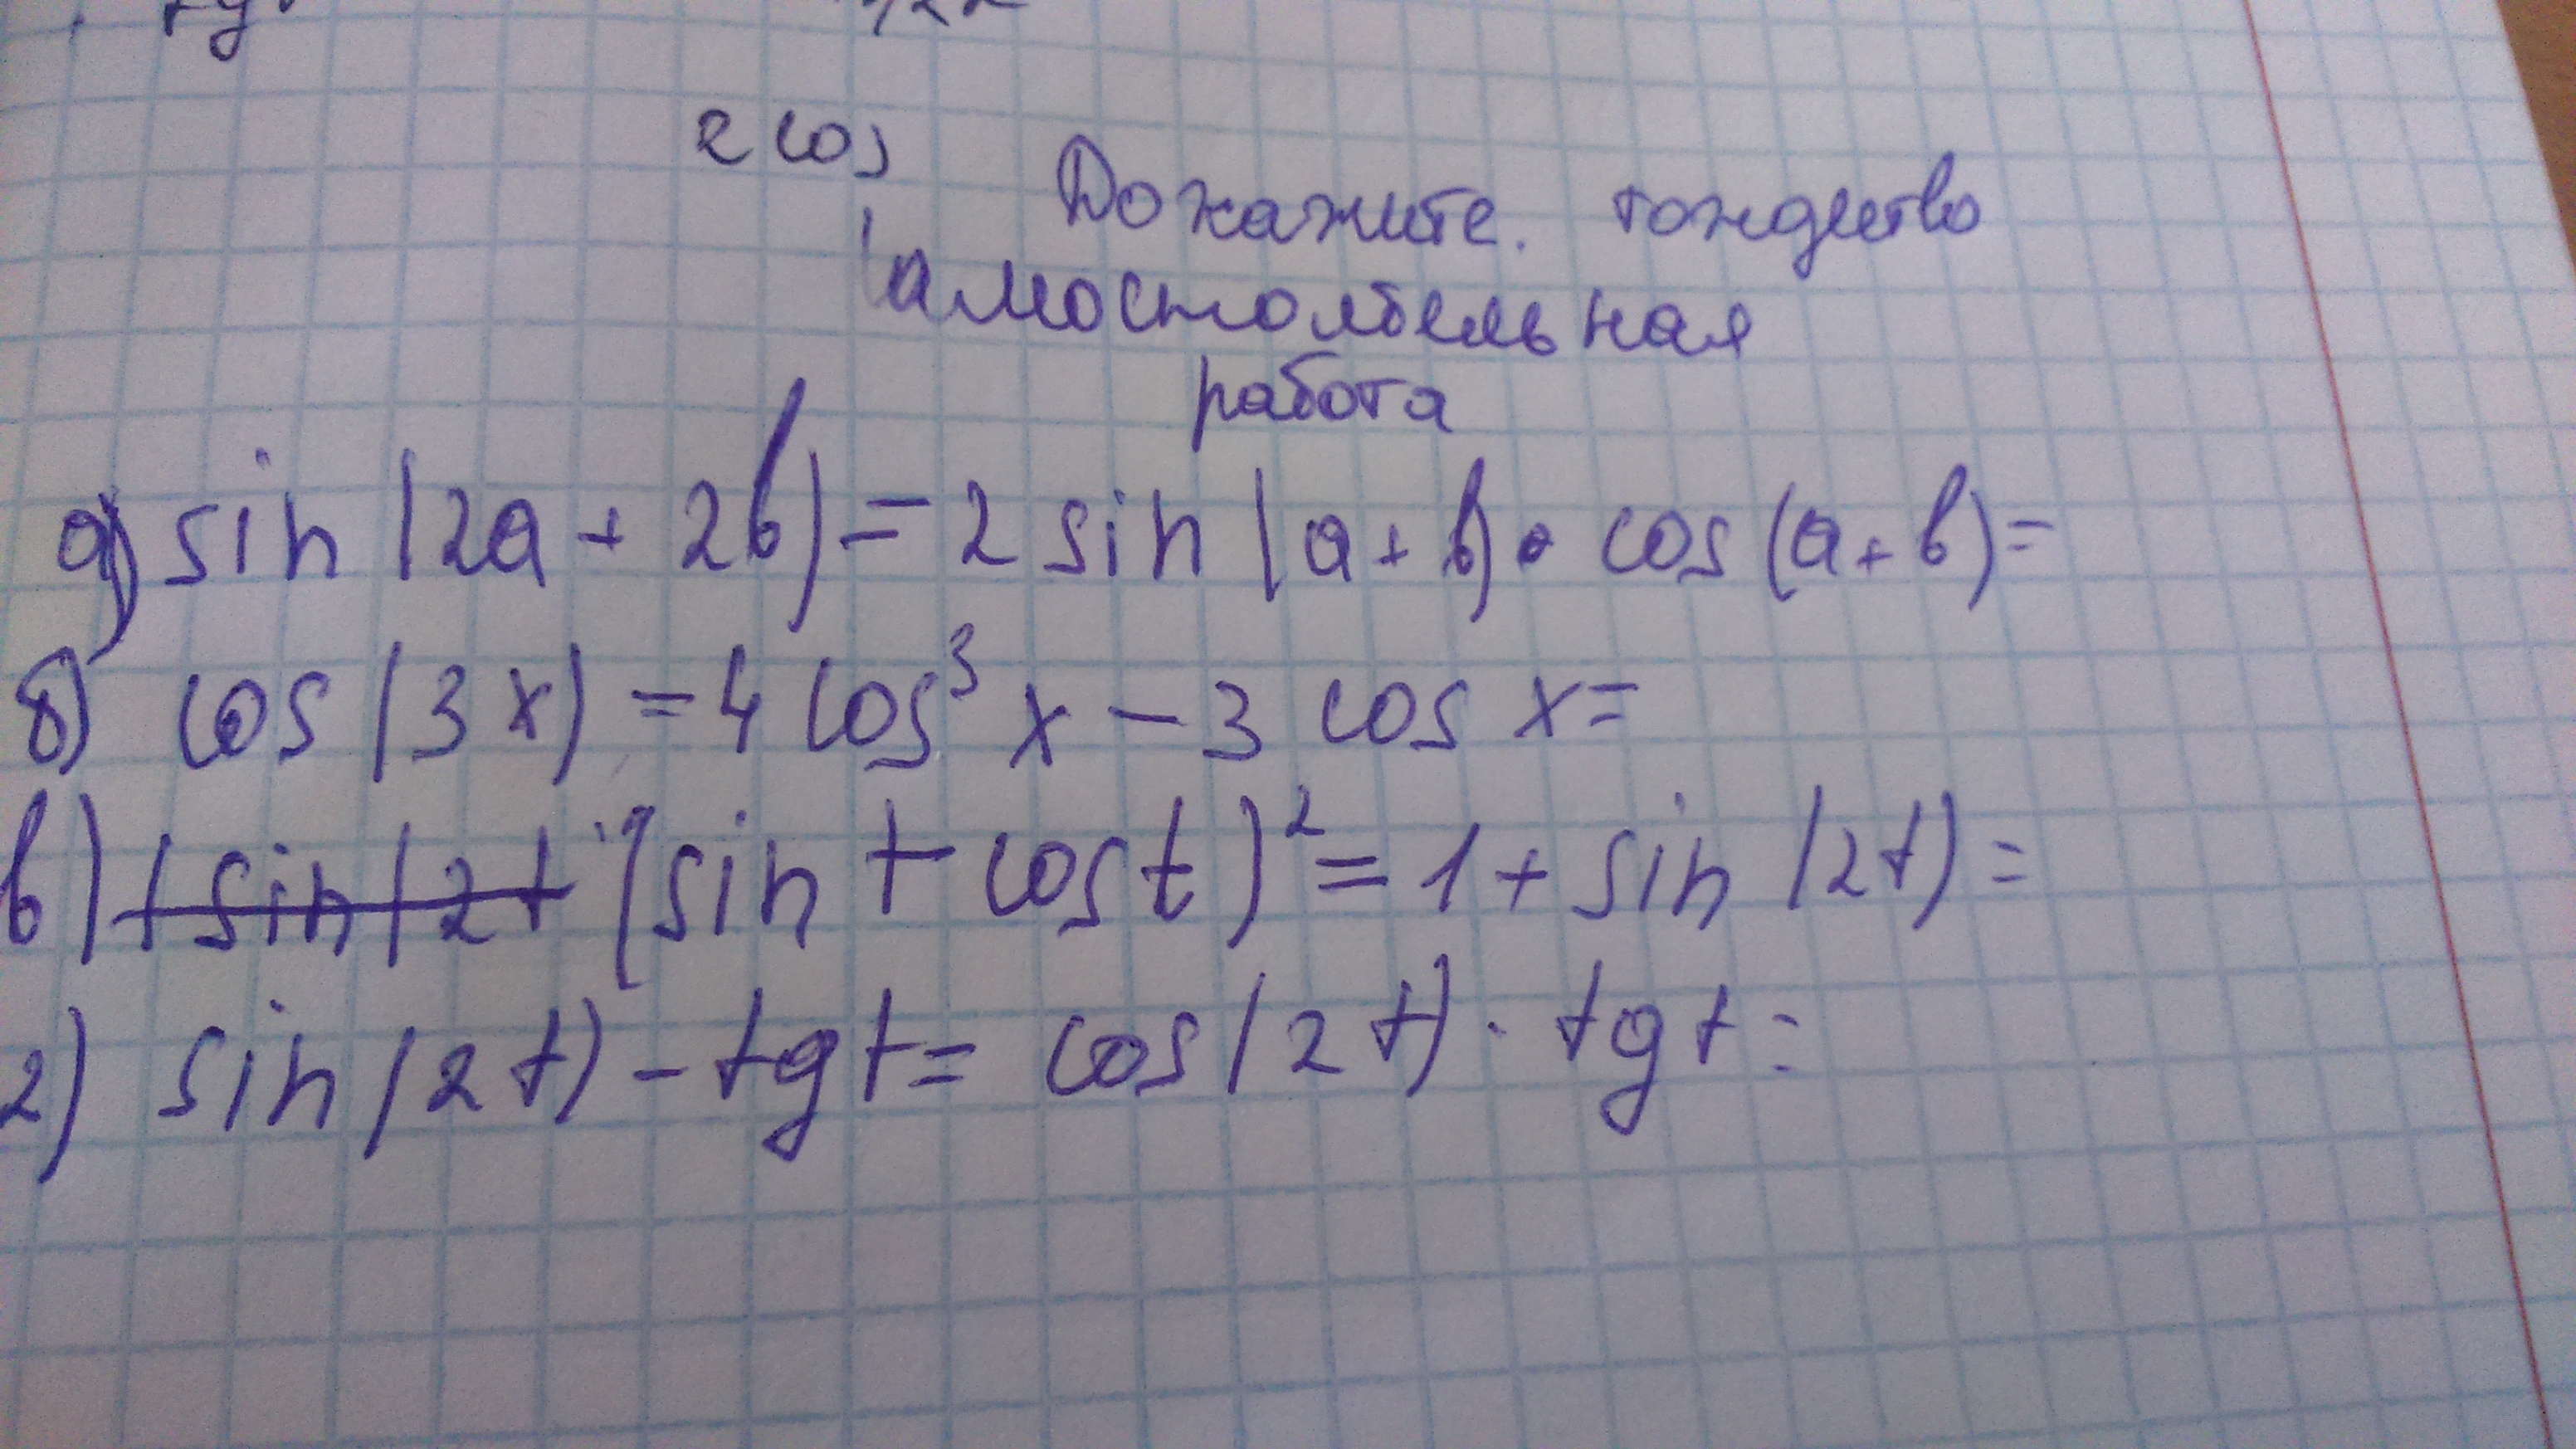 2 cos
Докажите. тождество
самостоятельная
работа
а) sin (2a + 2b) = 2 sin (a + b) • cos (a + b) =
б) cos (3x) = 4 cos³ x - 3 cos x =
в) (sin t cos t)² = 1 + sin (2t) =
г) sin (2t) - tg t = cos (2t) · tg t =